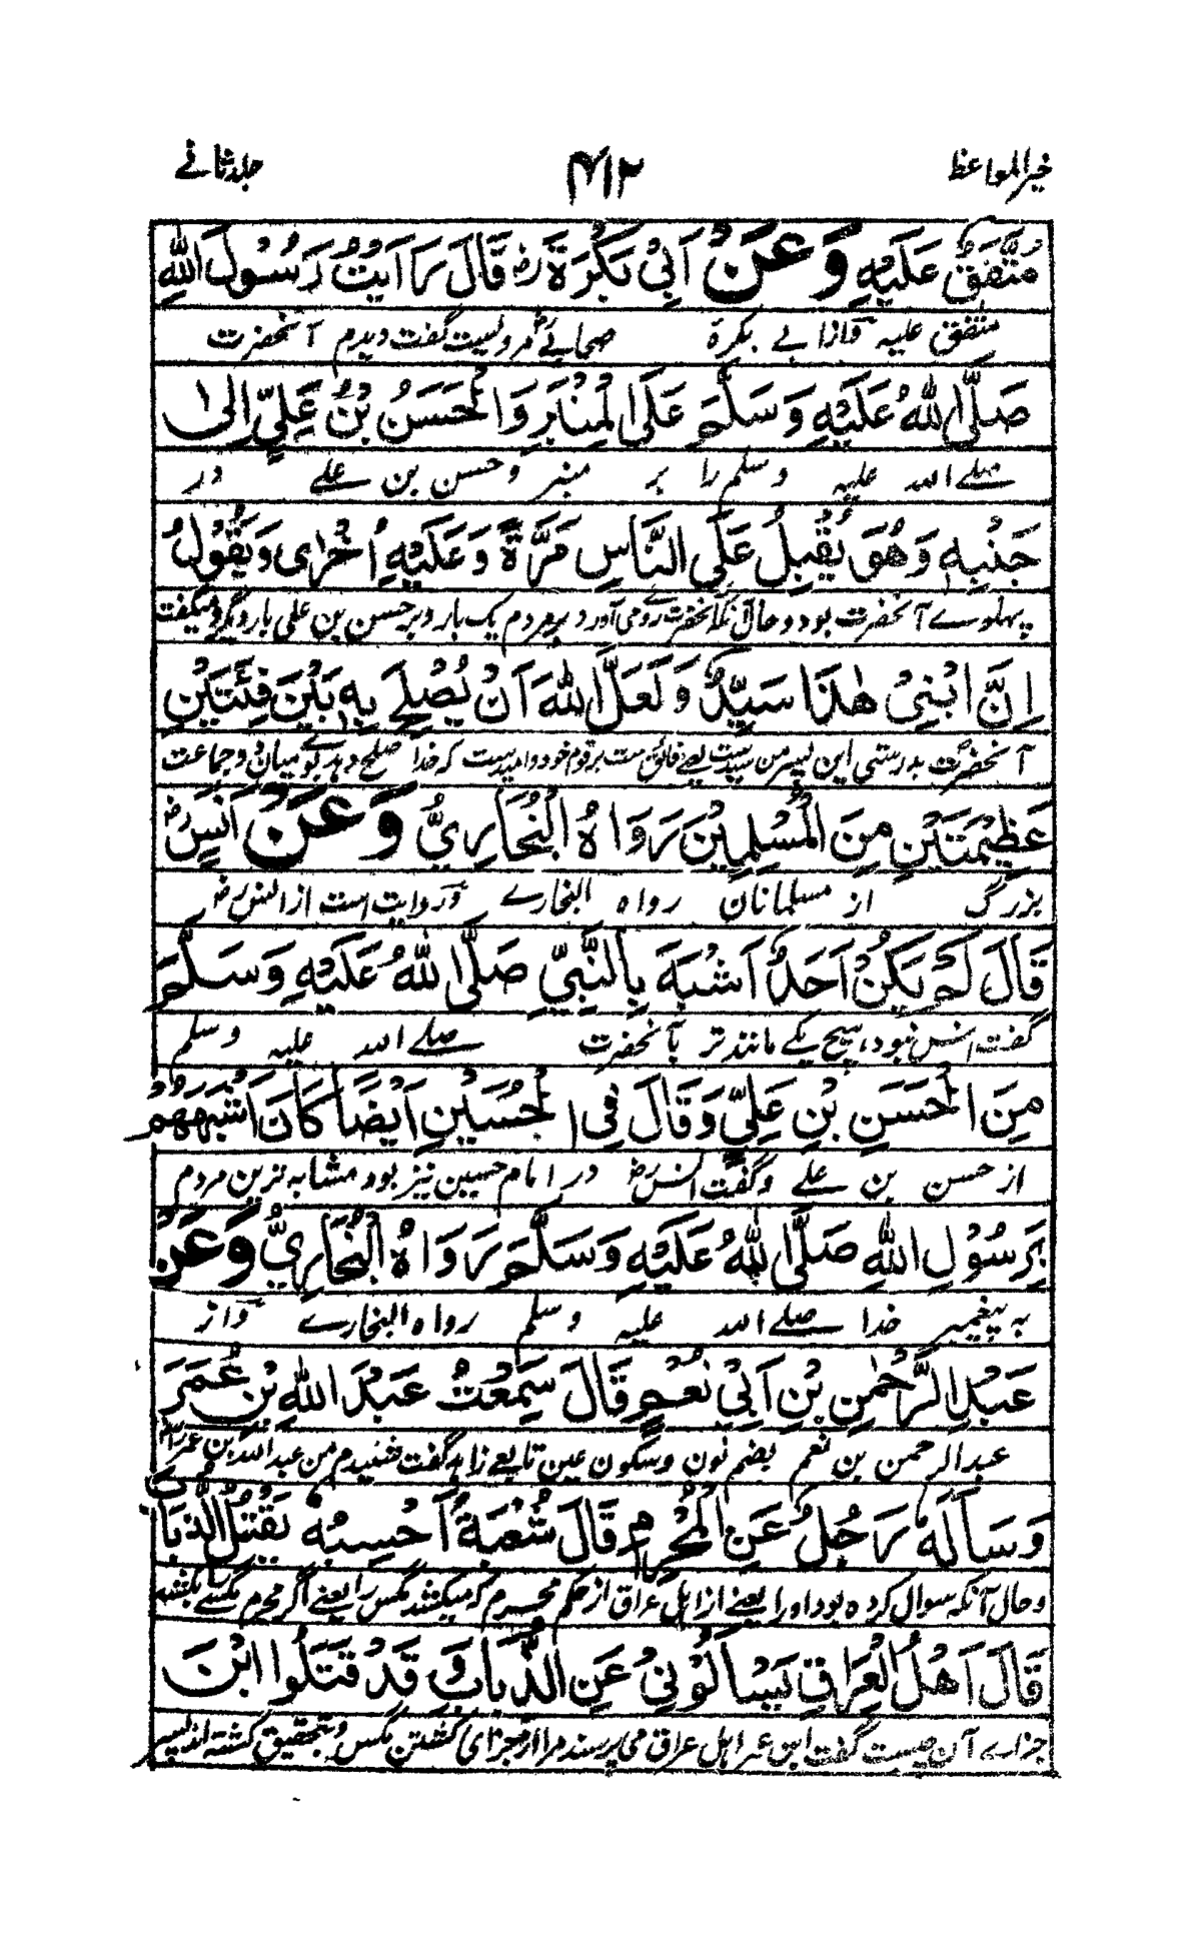 خیر المواعظ ۴۱۲ جلد ثانے
مُتَّفَقٌ عَلَيْهِ وَعَنْ اَبِيْ بَكْرَةَ رض قَالَ رَاَيْتُ رَسُوْلَ اللهِ
متفق علیہ و از ابے بکرة صحابئے مروسیت گفت دیدم آنحضرت
صَلَّى اللهُ عَلَيْهِ وَسَلَّمَ عَلَى الْمِنْبَرِ وَالْحَسَنُ بْنُ عَلِيٍّ اِلٰى
صلے اللہ علیہ وسلم را بر منبر و حسن بن علے در
جَنْبِهٖ وَهُوَ يُقْبِلُ عَلَى النَّاسِ مَرَّةً وَعَلَيْهِ اُخْرٰى وَيَقُوْلُ
پہلوے آنحضرت بود و حال آنکہ آنحضرت رومی آورد بر مردم یک بار و بر حسن بن علی بار دیگر و میگفت
اِنَّ ابْنِيْ هٰذَا سَيِّدٌ وَلَعَلَّ اللهَ اَنْ يُصْلِحَ بِهٖ بَيْنَ فِئَتَيْنِ
آنحضرت بدرستی این پسر من سیدست یعنے فائق ست بر قوم خود و امیدست کہ خدا صلح دہد بوے میان دو جماعت
عَظِيْمَتَيْنِ مِنَ الْمُسْلِمِيْنَ رَوَاهُ الْبُخَارِيُّ وَعَنْ اَنَسٍ رض
بزرگ از مسلمانان رواہ البخارے و روایت است از انس رض
قَالَ لَمْ يَكُنْ اَحَدٌ اَشْبَهَ بِالنَّبِيِّ صَلَّى اللهُ عَلَيْهِ وَسَلَّمَ
گفت انس نبود ہیچ یکے مانند تر بآنحضرت صلے اللہ علیہ وسلم
مِنَ الْحَسَنِ بْنِ عَلِيٍّ وَقَالَ فِي الْحُسَيْنِ اَيْضًا كَانَ اَشْبَهَهُمْ
از حسن بن علے و گفت انس رض در امام حسین نیز بود مشابہ ترین مردم
بِرَسُوْلِ اللهِ صَلَّى اللهُ عَلَيْهِ وَسَلَّمَ رَوَاهُ الْبُخَارِيُّ وَعَنْ
بہ پیغمبر خدا صلے اللہ علیہ وسلم رواہ البخارے و از
عَبْدِ الرَّحْمٰنِ بْنِ اَبِيْ نُعْمٍ قَالَ سَمِعْتُ عَبْدَ اللهِ بْنَ عُمَرَ
عبد الرحمن بن نعم بضم نون و سکون عین تابعے زاہد گفت شنیدم من عبد اللہ بن عمر را
وَسَاَلَهٗ رَجُلٌ عَنِ الْمُحْرِمِ قَالَ شُعْبَةُ اَحْسِبُهٗ يَقْتُلُ الذُّبَابَ
و حال آنکہ سوال کردہ بود او را یعنے از اہل عراق از حکم محرم کہ میکشد مگس را یعنے اگر محرم مگسے را بکشد
قَالَ اَهْلُ الْعِرَاقِ يَسْاَلُوْنِيْ عَنِ الذُّبَابِ وَقَدْ قَتَلُوا ابْنَ
جزاے آن چیست گفت ابن عمر اہل عراق می پرسند مرا از جزای کشتن مگس و بتحقیق کشتہ اند پسر